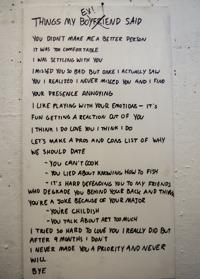 EX!
THINGS MY BOYFRIEND SAID
YOU DIDN'T MAKE ME A BETTER PERSON
IT WAS TOO COMFORTABLE
I WAS SETTLING WITH YOU
I MISSED YOU SO BAD BUT ONCE I ACTUALLY SAW
YOU I REALIZED I NEVER MISSED YOU AND I FIND
YOUR PRESENCE ANNOYING
I LIKE PLAYING WITH YOUR EMOTIONS - IT'S
FUN GETTING A REACTION OUT OF YOU
I THINK I DO LOVE YOU I THINK I DO
LET'S MAKE A PROS AND CONS LIST OF WHY
WE SHOULD DATE
- YOU CAN'T COOK
- YOU LIED ABOUT KNOWING HOW TO FISH
- IT'S HARD DEFENDING YOU TO MY FRIENDS
WHO DEGRADE YOU BEHIND YOUR BACK AND THINK
YOU'RE A JOKE BECAUSE OF YOUR MAJOR
- YOU'RE CHILDISH
- YOU TALK ABOUT ART TOO MUCH
I TRIED SO HARD TO LOVE YOU I REALLY DID BUT
AFTER 9 MONTHS I DON'T
I NEVER MADE YOU A PRIORITY AND NEVER
WILL
BYE